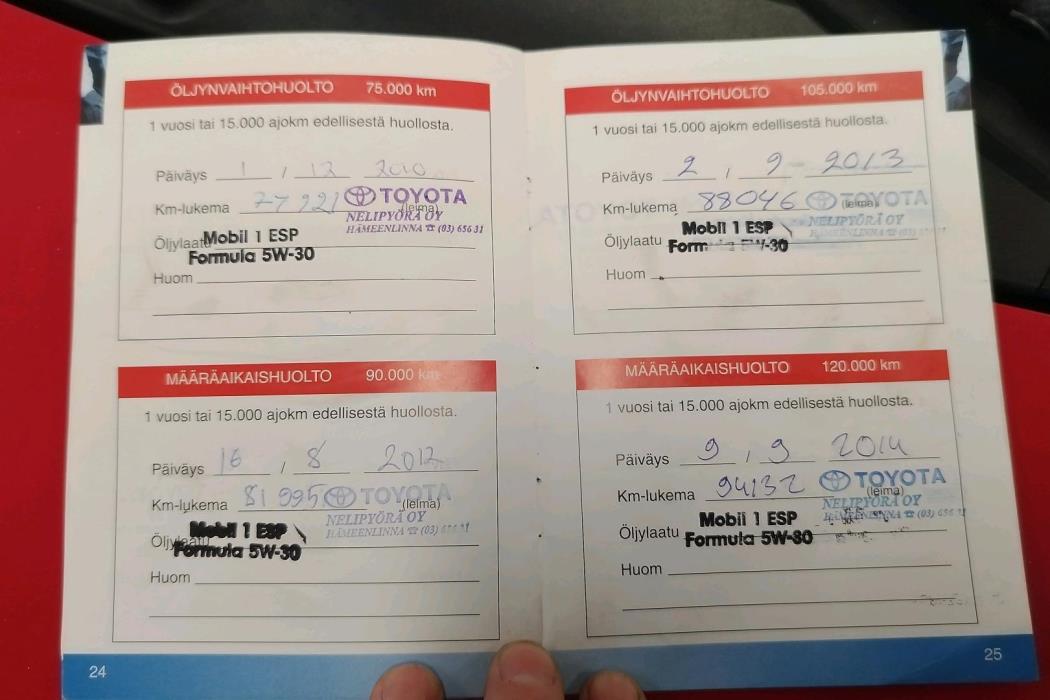 ÖLJYNVAIHTOHUOLTO 75.000 km
1 vuosi tai 15.000 ajokm edellisestä huollosta.
Päiväys 1 / 12 2010
Km-lukema 77921 TOYOTA
(leima)
NELIPYÖRÄ OY
HÄMEENLINNA ☎ (03) 656 31
Öljylaatu Mobil 1 ESP
Formula 5W-30
Huom
MÄÄRÄAIKAISHUOLTO 90.000 km
1 vuosi tai 15.000 ajokm edellisestä huollosta.
Päiväys 16 / 8 2012
Km-lukema 81995 TOYOTA
(leima)
NELIPYÖRÄ OY
HÄMEENLINNA ☎ (03) 656 31
Öljylaatu Mobil 1 ESP
Formula 5W-30
Huom
24
ÖLJYNVAIHTOHUOLTO 105.000 km
1 vuosi tai 15.000 ajokm edellisestä huollosta.
Päiväys 2 / 9 - 2013
Km-lukema 88046 TOYOTA
(leima)
NELIPYÖRÄ OY
HÄMEENLINNA ☎ (03) 656 31
Öljylaatu Mobil 1 ESP
Formula 5W-30
Huom
MÄÄRÄAIKAISHUOLTO 120.000 km
1 vuosi tai 15.000 ajokm edellisestä huollosta.
Päiväys 9 / 9 2014
Km-lukema 94132 TOYOTA
(leima)
NELIPYÖRÄ OY
HÄMEENLINNA ☎ (03) 656 31
Öljylaatu Mobil 1 ESP
Formula 5W-30
Huom
25